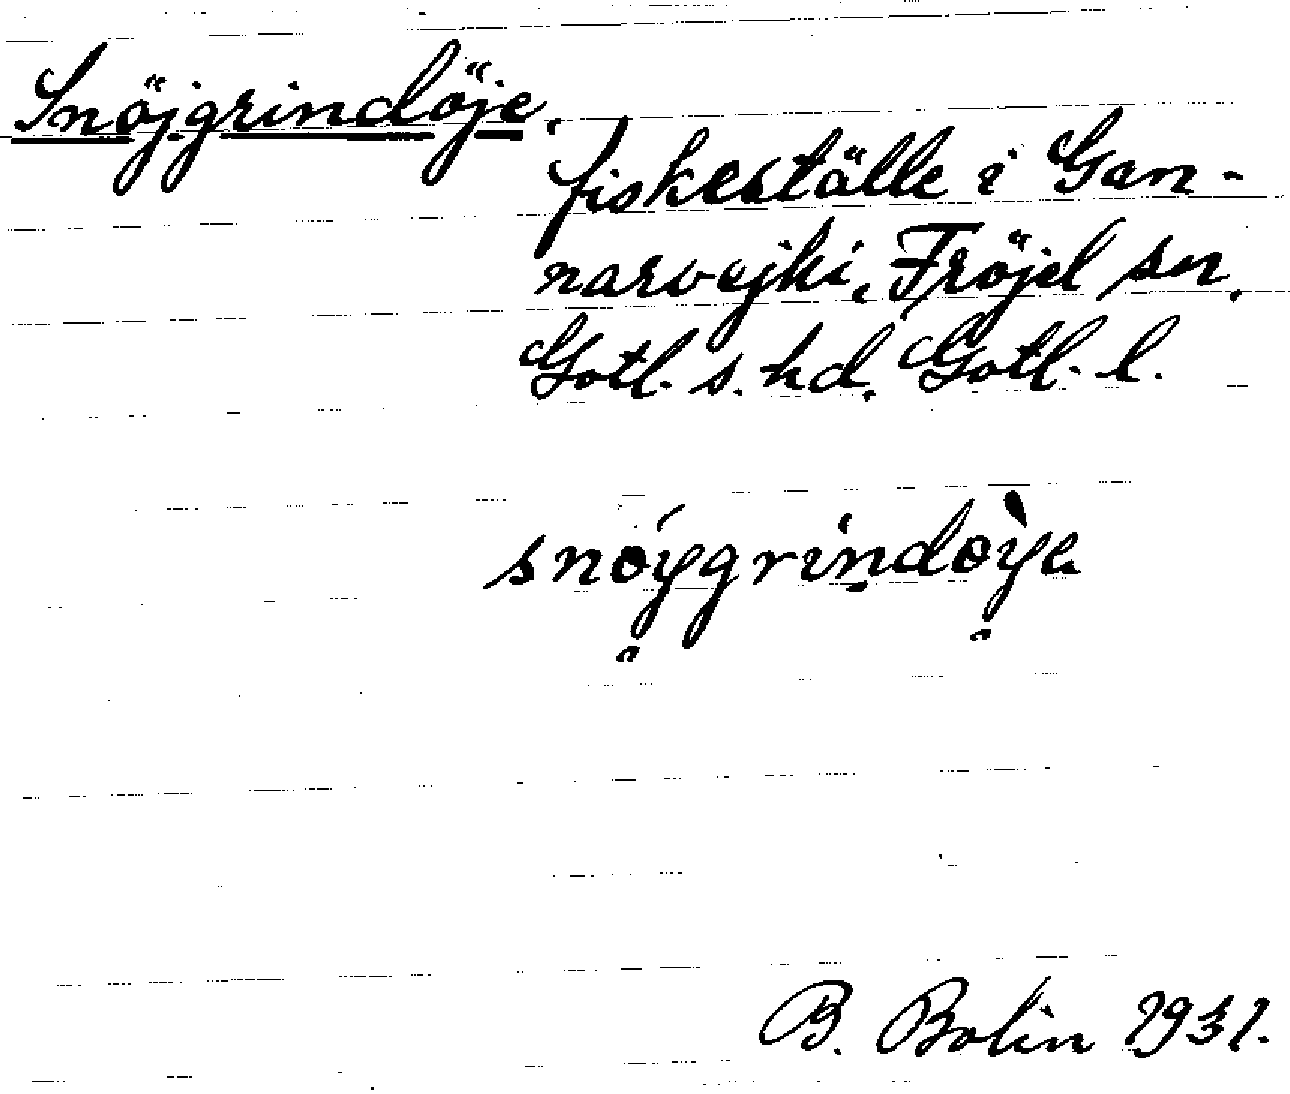 Snöjgrindöje,
fiskeställe i Gan-
narvejki, Fröjel sn.
Gotl. s. hd. Gotl. l.
snöygrindòye
B. Bolin 1931.